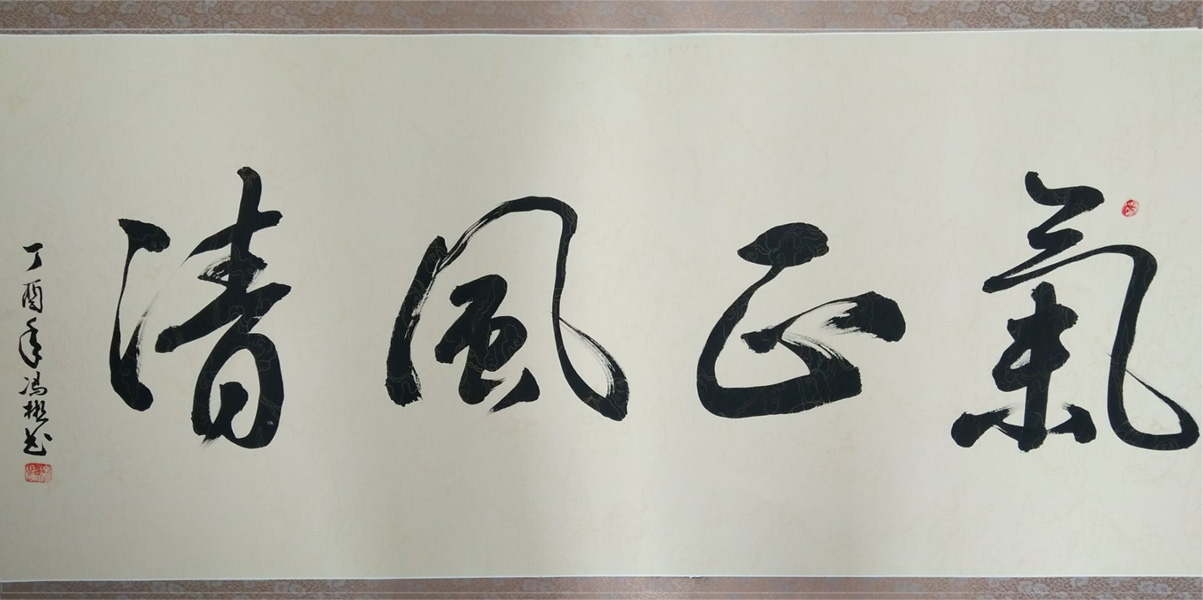 氣正風清
丁酉年馮彬书